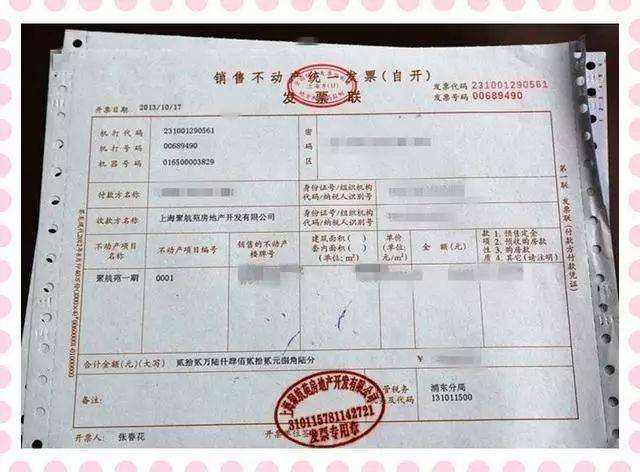 销售不动产统一发票(自开)
发票联
发票代码 231001290561
发票号码 00689490
开票日期 2013/10/17
机打代码 231001290561
机打号码 00689490
机器号码 016500003829
密码区
付款方名称
身份证号/组织机构代码/纳税人识别号
收款方名称 上海聚航苑房地产开发有限公司
身份证号/组织机构代码/纳税人识别号
不动产项目名称 不动产项目编号 销售的不动产楼牌号 建筑面积( ) 套内面积( ) (单位:m²) 单价 (单位:元/m²) 金额(元) 款项性质 1.预售定金 2.预收购房款 3.购房款 4.其它(请注明)
聚航苑一期 0001
合计金额(元)(大写) 贰拾贰万陆仟肆佰贰拾贰元捌角陆分 ¥
备注:
管税务
及代码
浦东分局
131011500
开票人: 张春花
第一联 发票联(付款方付款凭证)
上海聚航苑房地产开发有限公司
310115781142721
发票专用章